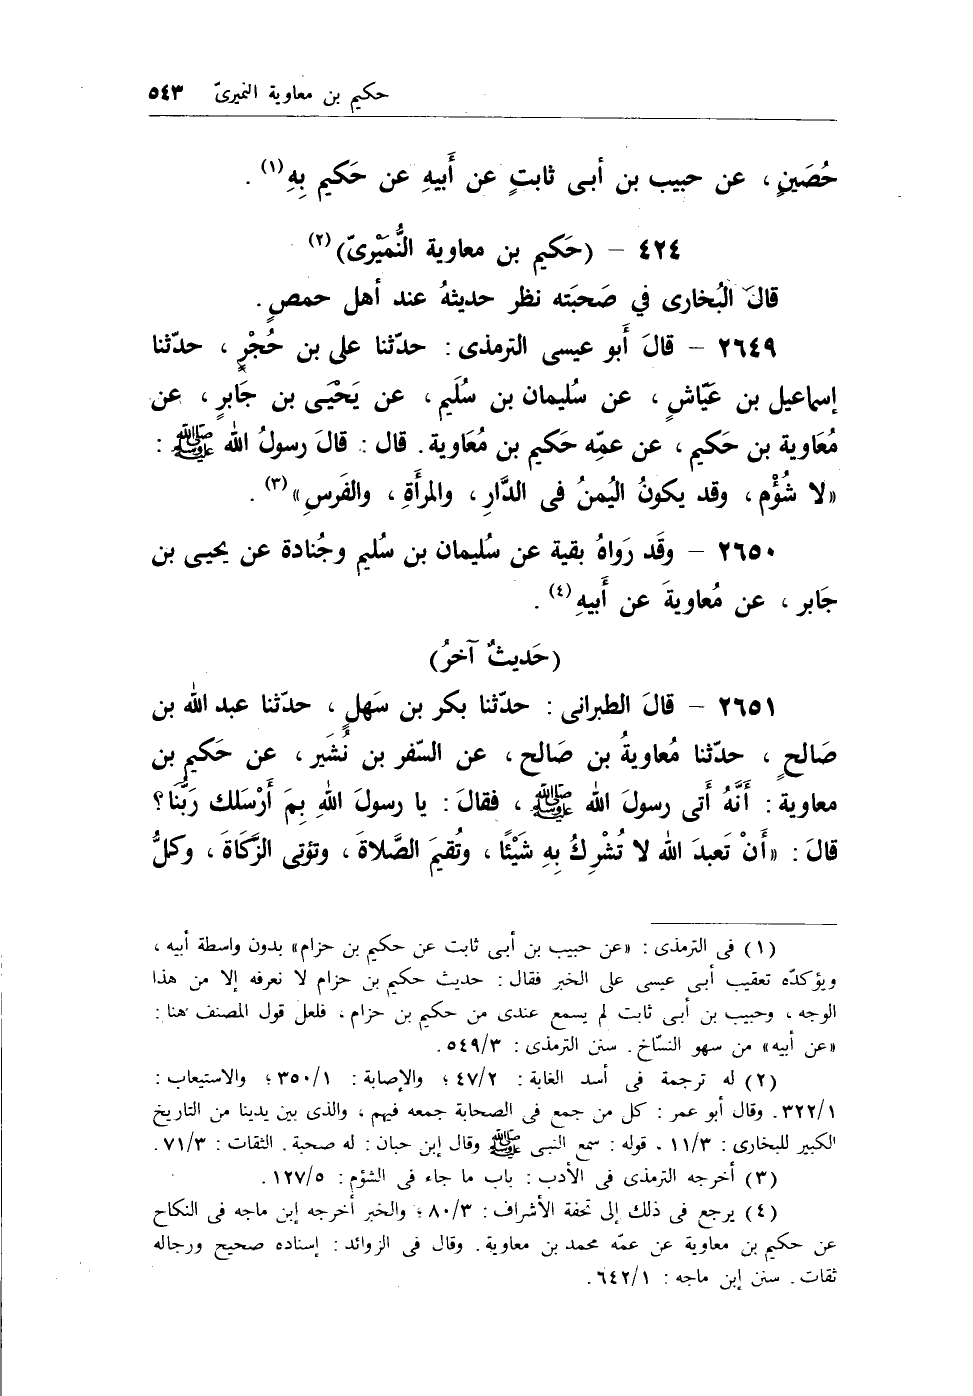 حكيم بن معاوية النميرىّ ٥٤٣
حُصَينٍ ، عن حبيب بن أبى ثابتٍ عن أَبيهِ عن حَكيم بِهِ(١) .
٤٢٤ – (حَكيم بن معاوية النُّمَيْرىّ)(٢)
قالَ البُخارى في صَحبَته نظر حديثهُ عند أهل حمصٍ .
٢٦٤٩ – قالَ أَبو عيسى الترمذى : حدّثنا على بن حُجْرٍ ، حدّثنا
إسماعيل بن عَيّاشٍ ، عن سُليمان بن سُلَيم ، عن يَحْيَى بن جَابرٍ ، عن
مُعَاوية بن حَكيم ، عن عمِّه حَكيم بن مُعَاوية . قال : قالَ رسولُ الله ﷺ :
«لا شُؤْم ، وقد يكونُ اليُمنُ فى الدَّارِ ، والمرأَةِ ، والفَرسِ»(٣) .
٢٦٥٠ – وقَد رَواهُ بقية عن سُليمان بن سُليم وجُنادة عن يحيى بن
جَابر ، عن مُعاويةَ عن أَبيهِ(٤) .
(حَديثٌ آخرُ)
٢٦٥١ – قالَ الطبرانى : حدّثنا بكر بن سَهلٍ ، حدّثنا عبد الله بن
صَالحٍ ، حدّثنا مُعاويةُ بن صَالح ، عن السّفر بن نُشَير ، عن حَكيم بن
معاوية : أَنَّهُ أَتى رسولَ الله ﷺ ، فقالَ : يا رسولَ اللهِ بِمَ أَرْسَلك رَبُّنَا ؟
قالَ : «أَنْ تَعبدَ الله لا تُشْرِكُ بِهِ شَيْئًا ، وتُقيمَ الصَّلاةَ ، وتؤتى الزَّكَاةَ ، وكلُّ
(١) فى الترمذى : «عن حبيب بن أبى ثابت عن حكيم بن حزام» بدون واسطة أبيه ،
ويؤكدّه تعقيب أبى عيسى على الخبر فقال : حديث حكيم بن حزام لا نعرفه إلا من هذا
الوجه ، وحبيب بن أبى ثابت لم يسمع عندى من حكيم بن حزام ، فلعل قول المصنف هنا :
«عن أبيه» من سهو النسّاخ . سنن الترمذى : ٥٤٩/٣ .
(٢) له ترجمة فى أسد الغابة : ٤٧/٢ ؛ والإصابة : ٣٥٠/١ ؛ والاستيعاب :
٣٢٢/١ . وقال أبو عمر : كل من جمع فى الصحابة جمعه فيهم ، والذى بين يدينا من التاريخ
الكبير للبخارى : ١١/٣ . قوله : سمع النبى ﷺ وقال إبن حبان : له صحبة . الثقات : ٧١/٣ .
(٣) أخرجه الترمذى فى الأدب : باب ما جاء فى الشؤم : ١٢٧/٥ .
(٤) يرجع فى ذلك إلى تحفة الأشراف : ٨٠/٣ ؛ والخبر أخرجه إبن ماجه فى النكاح
عن حكيم بن معاوية عن عمّه محمد بن معاوية . وقال فى الزوائد : إسناده صحيح ورجاله
ثقات . سنن إبن ماجه : ٦٤٢/١ .